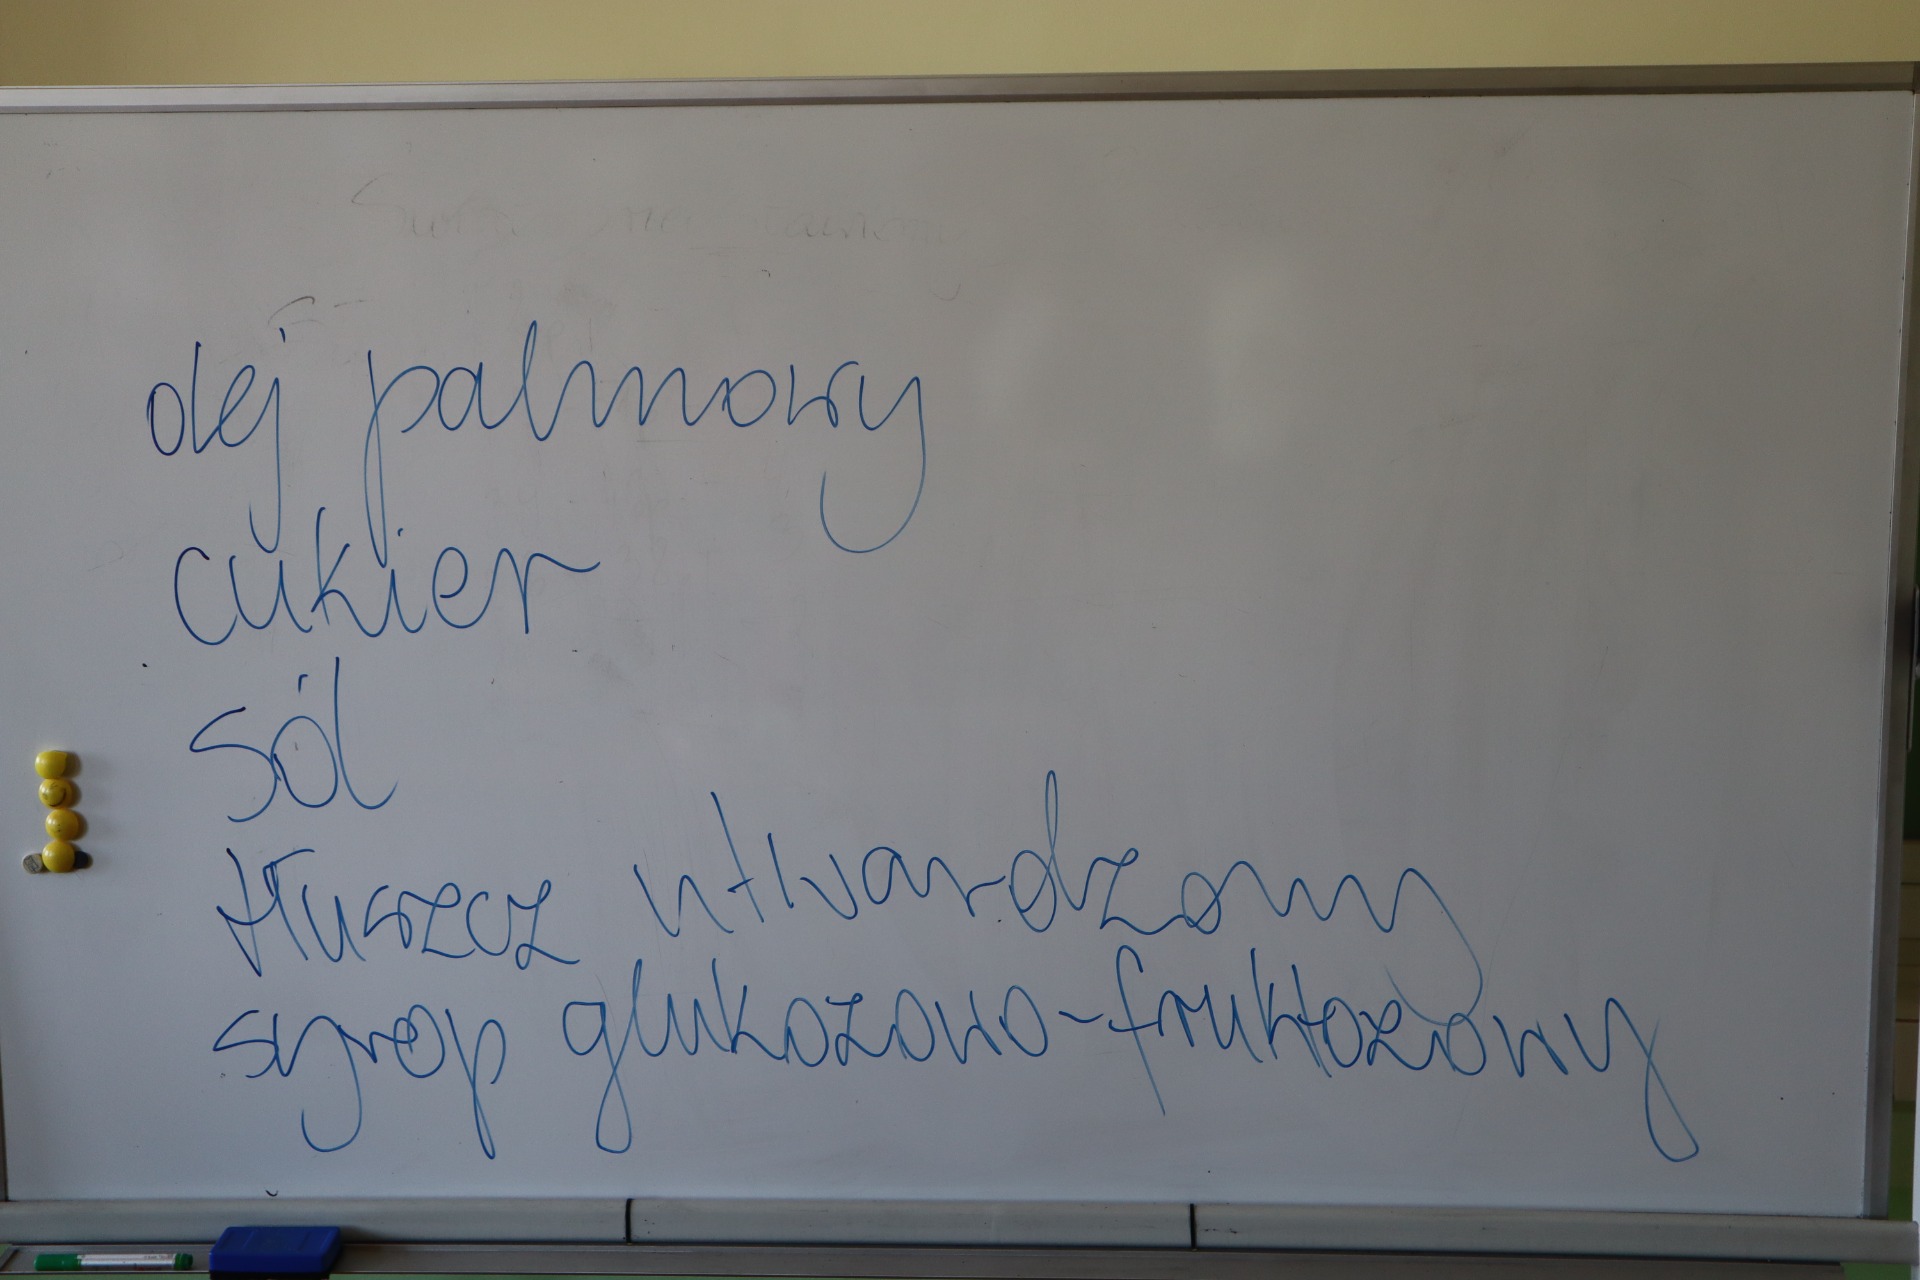 olej palmowy
cukier
sól
tłuszcz utwardzony
syrop glukozowo-fruktozowy